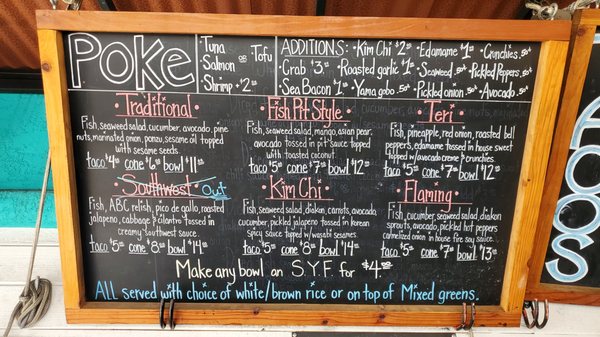 Poke
Tuna
Salmon or Tofu
Shrimp $2
ADDITIONS: • Kim Chi $2 • Edamame $1 • Crunchies .50¢
• Crab $3 • Roasted garlic $1 • Seaweed .50¢ • Pickled Peppers .50¢
• Sea Bacon $1 • Yama gobo .50¢ • Pickled onion .50¢ • Avocado .50¢
• Traditional •
Fish, seaweed salad, cucumber, avocado, pine
nuts, marinated onion, ponzu, sesame oil topped
with sesame seeds
taco $4 cone $6 bowl $11
• Fish Pit Style •
Fish, seaweed salad, mango, asian pear,
avocado tossed in pit sauce topped
with toasted coconut
taco $5 cone $7 bowl $12
• Teri •
Fish, pineapple, red onion, roasted bell
peppers, edamame tossed in house sweet
topped w/avocado creme & crunchies
taco $5 cone $7 bowl $12
• Southwest Out
Fish, ABC relish, pico de gallo, roasted
jalapeno, cabbage & cilantro tossed in
creamy southwest sauce
taco $5 cone $8 bowl $14
• Kim Chi •
Fish, seaweed salad, daikon, carrots, avocado,
cucumber, pickled jalapeno tossed in Korean
spicy sauce topped w/wasabi sesames
taco $5 cone $8 bowl $14
• Flaming •
Fish, cucumber, seaweed salad, daikon
sprouts, avocado, pickled hot peppers,
onion in house fire soy sauce
taco $5 cone $7 bowl $13
Make any bowl an S.Y.F. for $4.00
All served with choice of white/brown rice or on top of Mixed greens.